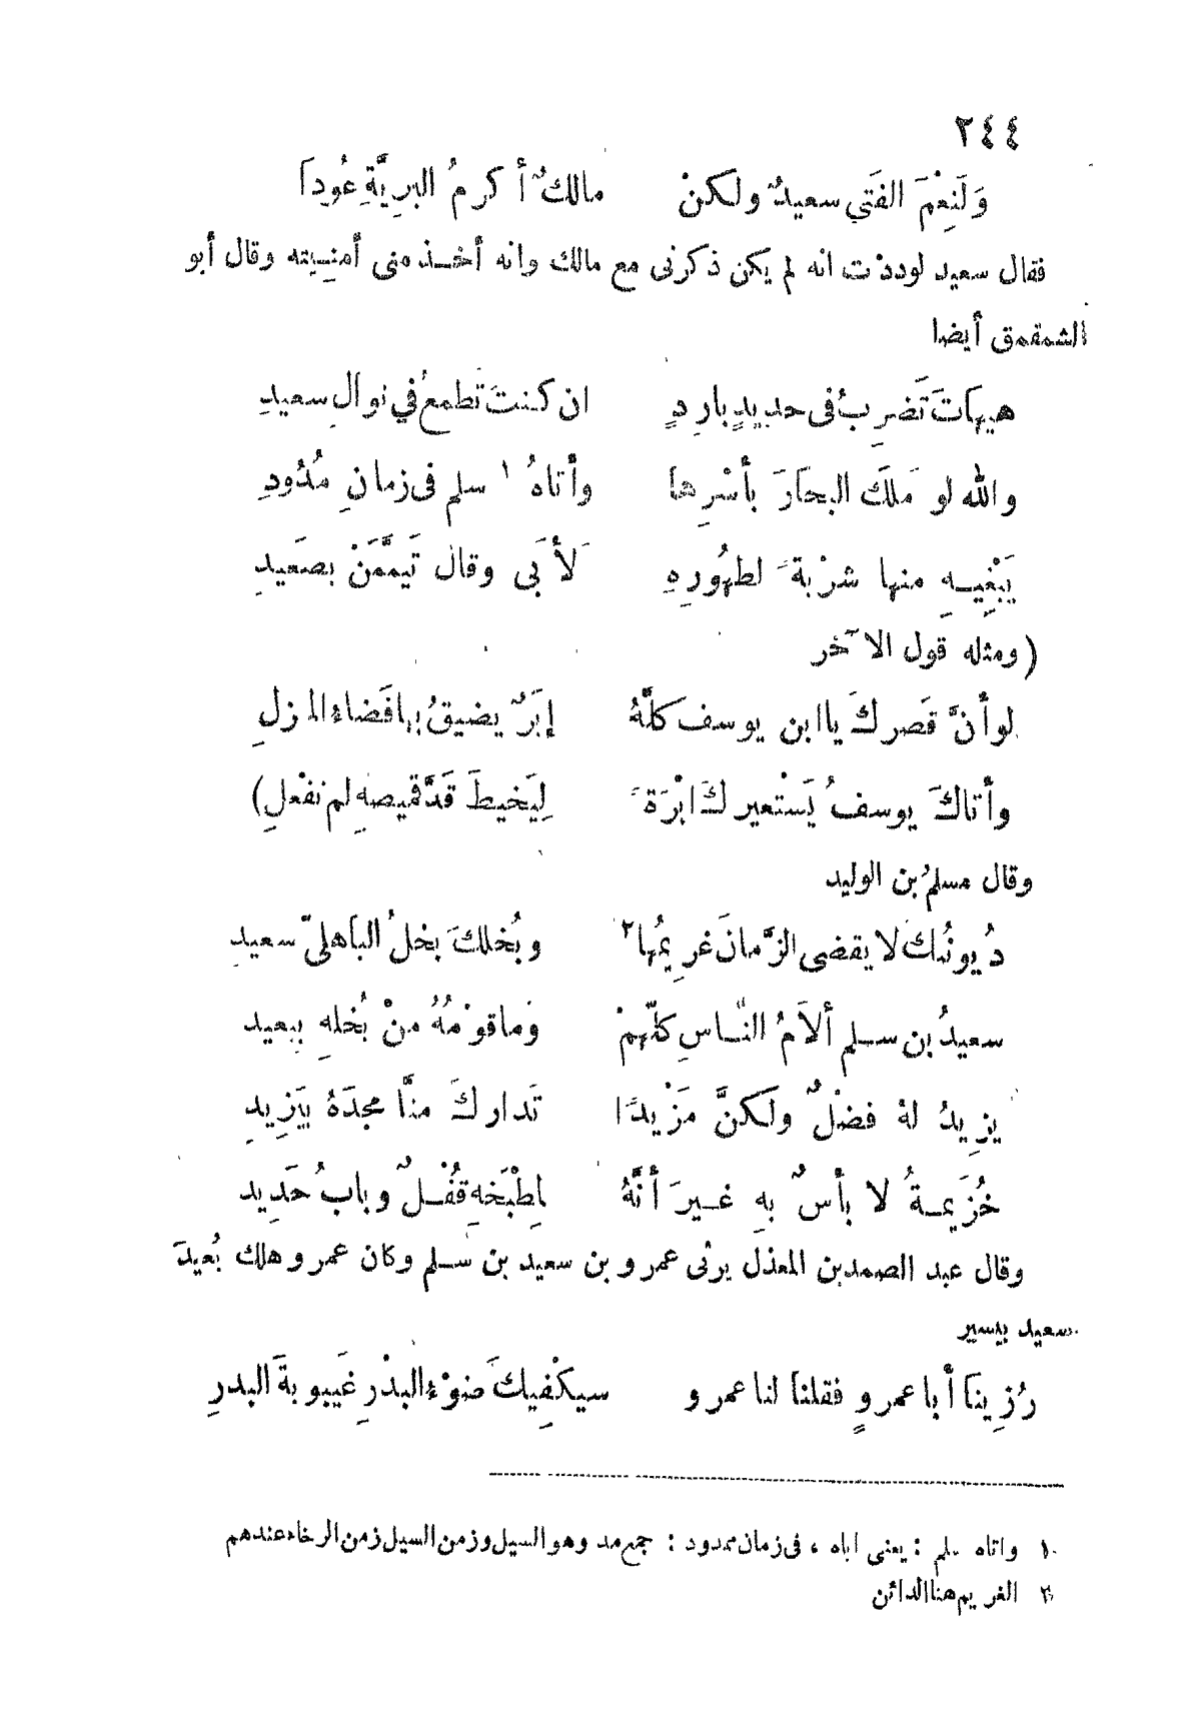 ٢٤٤
وَلَنِعْمَ الفَتَي سعيدٌ ولكنْ مالكٌ أكرمُ البرِيَّةِ عُودَا
فقال سعيد لوددْت انه لم يكن ذكرنى مع مالك وانه أخذ منى أمنِيته وقال أبو
الشمقمق أيضا
هيهاتَ تَضرِبُ فى حديدٍ بارِدٍ ان كنتَ تطمعُ في نوالِ سعيدِ
والله لو مَلَكَ البحَارَ بأسْرِها وأتاهُ ١ سلم فى زمانِ مُدُودِ
يَبْغِيهِ منها شرْبةً لطهُورِهِ لأَبَى وقال تَيمَّمَنْ بصَعيدِ
(ومثله قول الآخر
لو أنَّ قَصرك يا ابن يوسف كلَّهُ إبَرٌ يضيقُ بها فَضاء المنزلِ
وأتاكَ يوسفُ يَستْعيركَ ابْرَةً لِيَخيطَ قَدَّ قميصهِ لم نفْعلِ)
وقال مسلمُ بن الوليد
دُيونُك لا يقضى الزَّمانَ غرِيمُها ٢ وبُخلكَ بخلُ الباهليّ سعيدِ
سعيدُ بن سلم ألاَمُ النَّاسِ كلّهمْ وَما قوْمُهُ منْ بُخلهِ ببعيد
يزِيدُ لهُ فضْلٌ ولكنَّ مَزْيدًا تَداركَ منَّا مجدَهُ بيَزِيدِ
خُزَيمةُ لا بأسٌ بهِ غيرَ أنَّهُ لِطْبَخهِ قُفْلٌ وبابُ حَدِيد
وقال عبد الصمد بن المعذل يرثى عمرو بن سعيد بن سلم وكان عمرو هلك بُعيدَ
سعيد بيسير
رُزِينا أبا عمروٍ فقلنا لنا عمرو سيكْفِيكَ ضوْءُ البدْرِ غَيبوبةَ البدرِ
١ واتاه سلم : يعنى اباه ، فى زمان ممدود : جمع مد وهو السيل وزمن السيل زمن الرخاء عندهم
٢ الغريم هنا الدائن